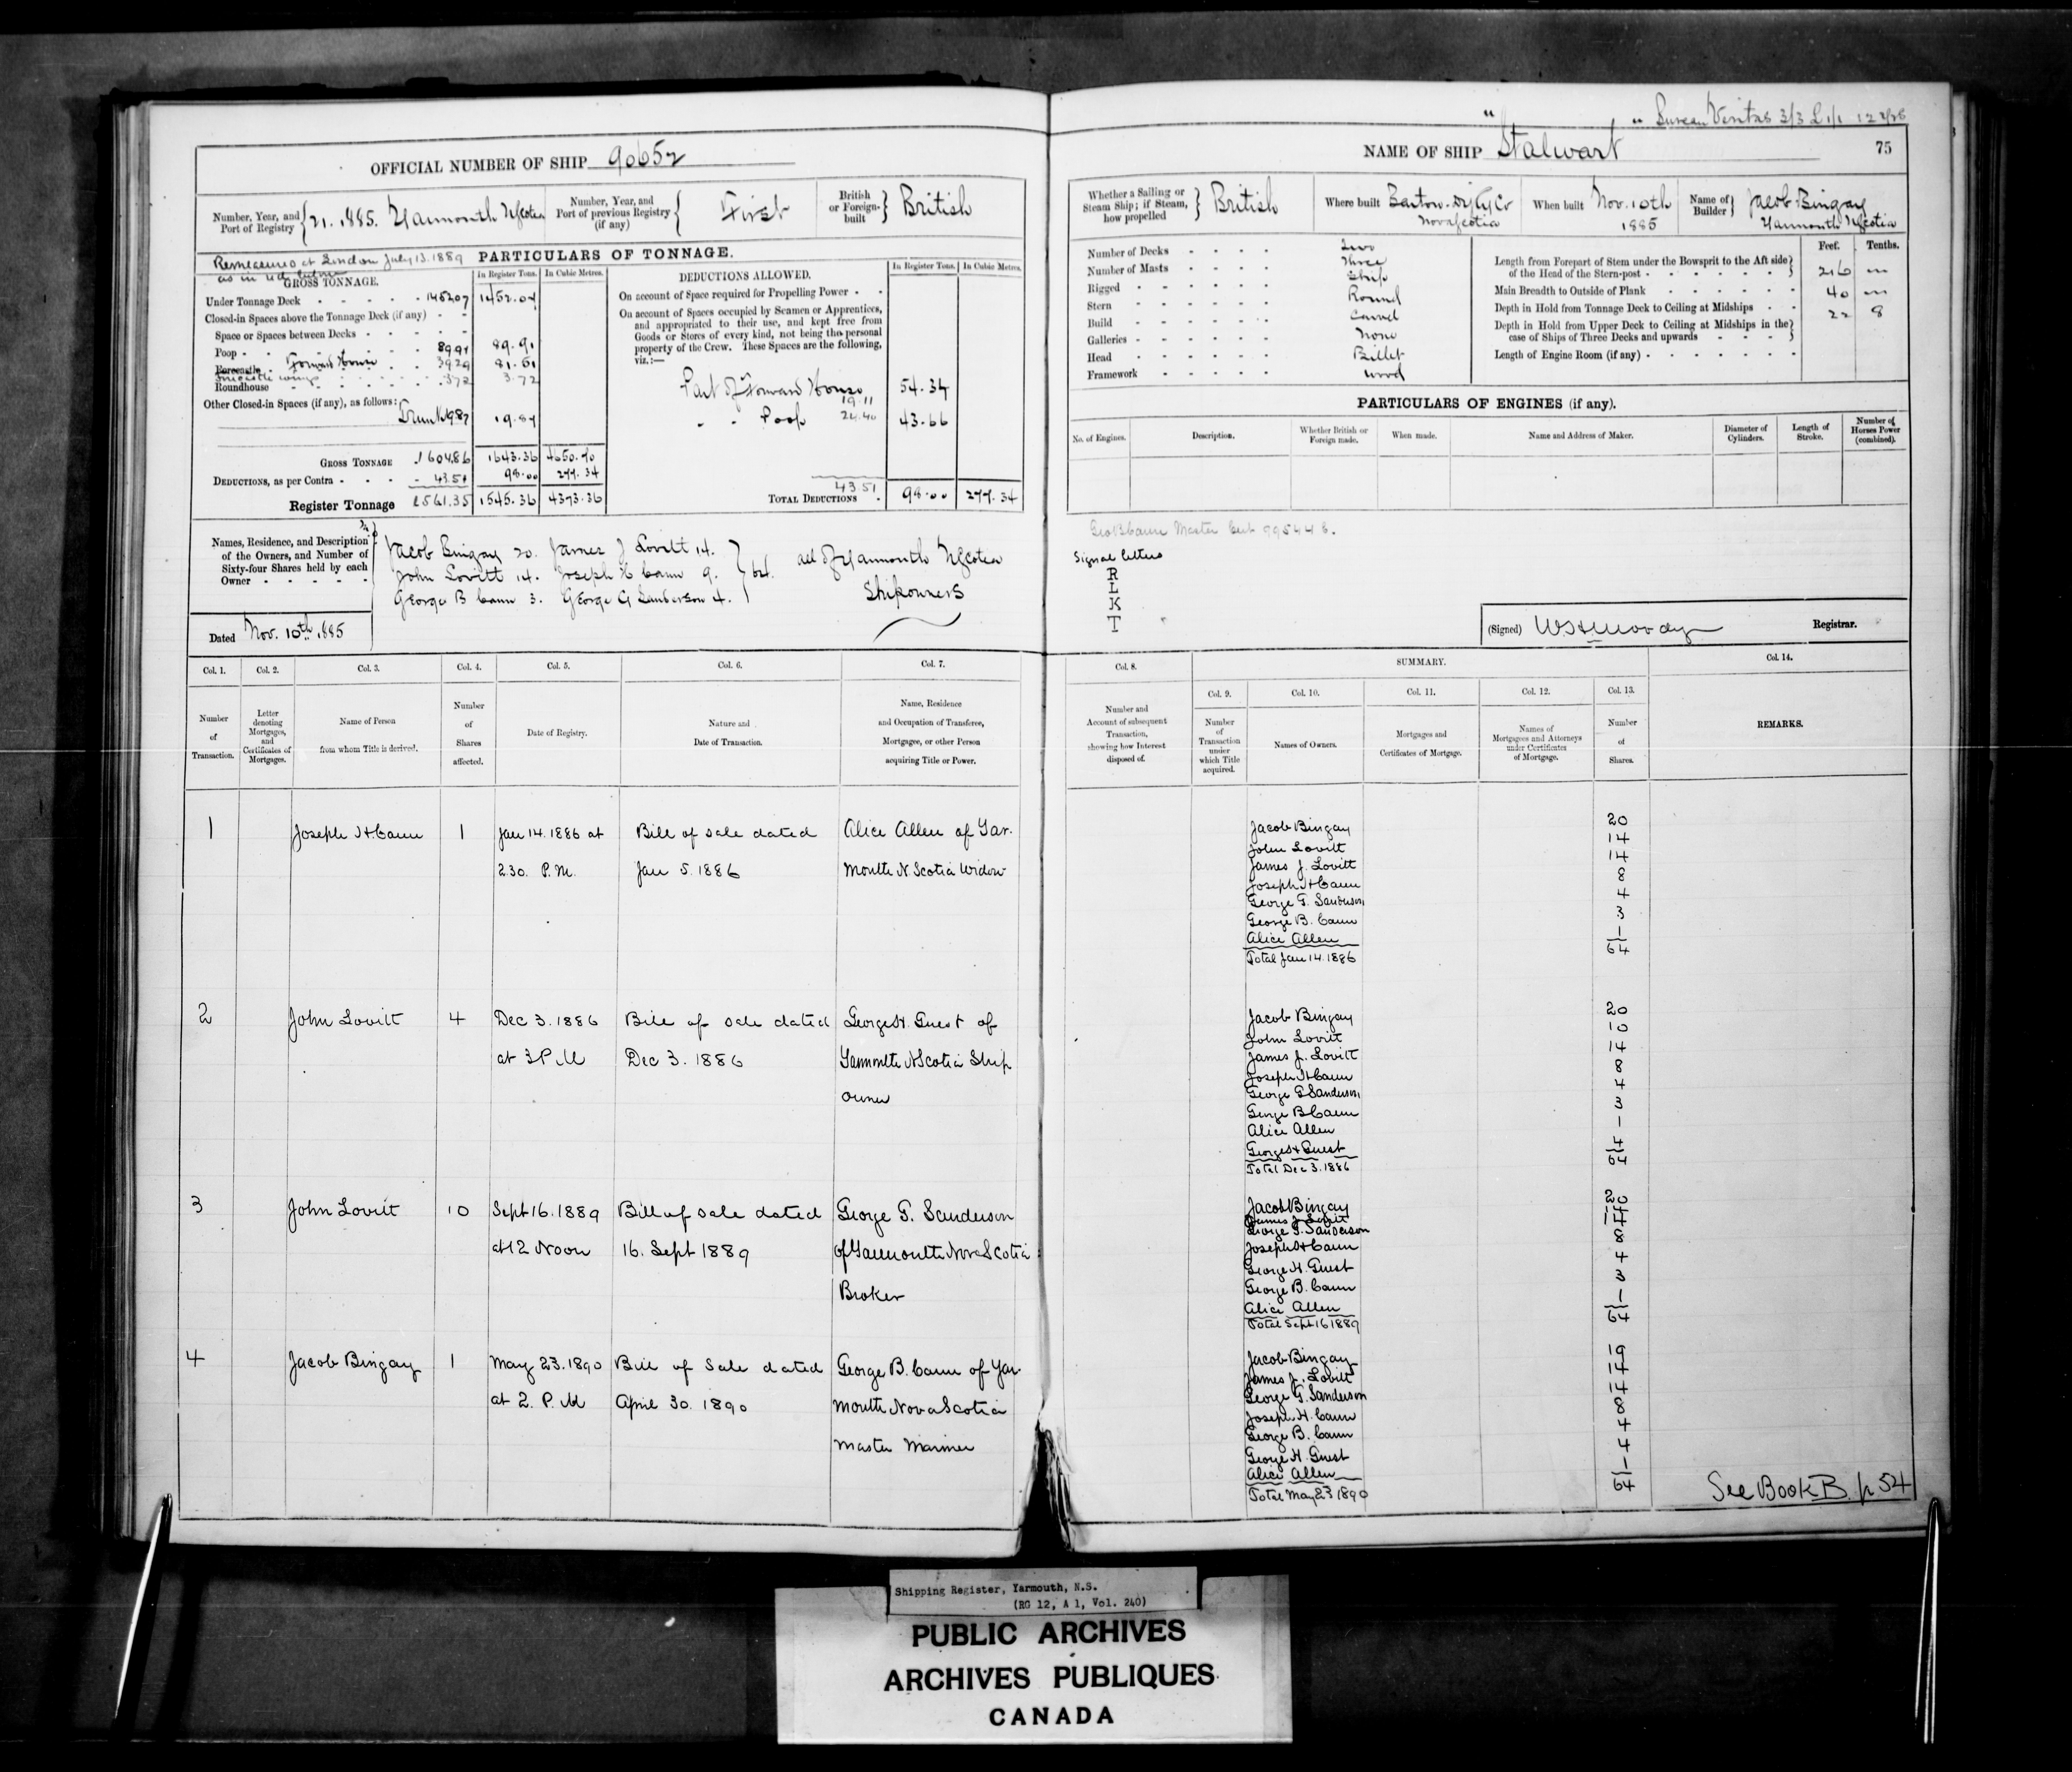 " " Bureau Veritas 3/3 L 1/1
OFFICIAL NUMBER OF SHIP 90652
NAME OF SHIP Stalwart 75
Number, Year, and Port of Registry 21. 1885. Yarmouth NScotia
Number, Year, and Port of previous Registry (if any) First
British or Foreign-built British
Whether a Sailing or Steam Ship; if Steam, how propelled British
Where built Barton. Digby Co Nova Scotia
When built Nov. 10th 1885
Name of Builder Jacob Bingay Yarmouth NScotia
Remeasured at London July 13. 1889
PARTICULARS OF TONNAGE.
GROSS TONNAGE. In Register Tons. In Cubic Metres.
Under Tonnage Deck 1452.07 1452.07
Closed-in Spaces above the Tonnage Deck (if any)
Space or Spaces between Decks
Poop 89.91 89.91
Forecastle Forward House 39.29 81.81
Roundhouse 3.72 3.72
Other Closed-in Spaces (if any), as follows:
Trunk 19.87 19.87
GROSS TONNAGE 1604.86 1643.36 4650.70
DEDUCTIONS, as per Contra 43.51 98.00 277.34
Register Tonnage 1561.35 1545.36 4373.36
DEDUCTIONS ALLOWED. In Register Tons. In Cubic Metres.
On account of Space required for Propelling Power
On account of Spaces occupied by Seamen or Apprentices,
and appropriated to their use, and kept free from
Goods or Stores of every kind, not being the personal
property of the Crew. These Spaces are the following,
viz.:—
Part of Forward House 19.11 54.34
" " Poop 24.40 43.66
43.51
TOTAL DEDUCTIONS 98.00 277.34
Number of Decks Two
Number of Masts Three
Rigged Ship
Stern Round
Build Carvel
Galleries None
Head Billet
Framework Wood
Feet. Tenths.
Length from Forepart of Stem under the Bowsprit to the Aft side
of the Head of the Stern-post 216
Main Breadth to Outside of Plank 40
Depth in Hold from Tonnage Deck to Ceiling at Midships 22 8
Depth in Hold from Upper Deck to Ceiling at Midships in the
case of Ships of Three Decks and upwards
Length of Engine Room (if any)
PARTICULARS OF ENGINES (if any).
No. of Engines. Description. Whether British or Foreign made. When made. Name and Address of Maker. Diameter of Cylinders. Length of Stroke. Number of Horses Power (combined).
Names, Residence, and Description
of the Owners, and Number of
Sixty-four Shares held by each
Owner
Jacob Bingay 20. James J Lovitt 14.
John Lovitt 14. Joseph H Cann 9.
George B Cann 3. George G Sanderson 4.
64. all of Yarmouth NScotia
Shipowners
Dated Nov. 10th 1885
Geo B Cann Master Cert
Signal Letters
R
L
K
T
(Signed) W S H Moody Registrar.
Col. 1. Col. 2. Col. 3. Col. 4. Col. 5. Col. 6. Col. 7. Col. 8. SUMMARY. Col. 14.
Col. 9. Col. 10. Col. 11. Col. 12. Col. 13.
Number of Transaction.
Letter denoting Mortgages, and Certificates of Mortgages.
Name of Person from whom Title is derived.
Number of Shares affected.
Date of Registry.
Nature and Date of Transaction.
Name, Residence and Occupation of Transferee, Mortgagee, or other Person acquiring Title or Power.
Number and Account of subsequent Transaction, showing how Interest disposed of.
Number of Transaction under which Title acquired.
Names of Owners.
Mortgages and Certificates of Mortgage.
Names of Mortgagees and Attorneys under Certificates of Mortgage.
Number of Shares.
REMARKS.
1 Joseph H Cann 1 Jan 14. 1886 at Bill of Sale dated Alice Allen of Yar-
2.30. P.M. Jan 5. 1886 mouth N. Scotia Widow
Jacob Bingay 20
John Lovitt 14
James J. Lovitt 14
Joseph H Cann 8
George G. Sanderson 4
George B. Cann 3
Alice Allen 1
Total Jan 14. 1886 64
2 John Lovitt 4 Dec 3. 1886 Bill of Sale dated George H. Guest of
at 3 P.M Dec 3. 1886 Yarmouth NScotia Ship
owner
Jacob Bingay 20
John Lovitt 10
James J. Lovitt 14
Joseph H Cann 8
George G Sanderson 4
George B Cann 3
Alice Allen 1
George H Guest 4
Total Dec 3. 1886 64
3 John Lovitt 10 Sept 16. 1889 Bill of Sale dated George G. Sanderson
at 12 Noon 16. Sept 1889 of Yarmouth Nova Scotia
Broker
Jacob Bingay 20
James J. Lovitt 14
George G. Sanderson 14
Joseph H Cann 8
George H. Guest 4
George B. Cann 3
Alice Allen 1
Total Sept 16 1889 64
4 Jacob Bingay 1 May 23. 1890 Bill of Sale dated George B. Cann of Yar
at 2. P.M April 30. 1890 mouth Nova Scotia
Master Mariner
Jacob Bingay 19
James J. Lovitt 14
George G. Sanderson 14
Joseph H. Cann 8
George B. Cann 4
George H. Guest 4
Alice Allen 1
Total May 23 1890 64
See Book B. p 54
Shipping Register, Yarmouth, N.S.
(RG 12, A 1, Vol. 240)
PUBLIC ARCHIVES
ARCHIVES PUBLIQUES
CANADA